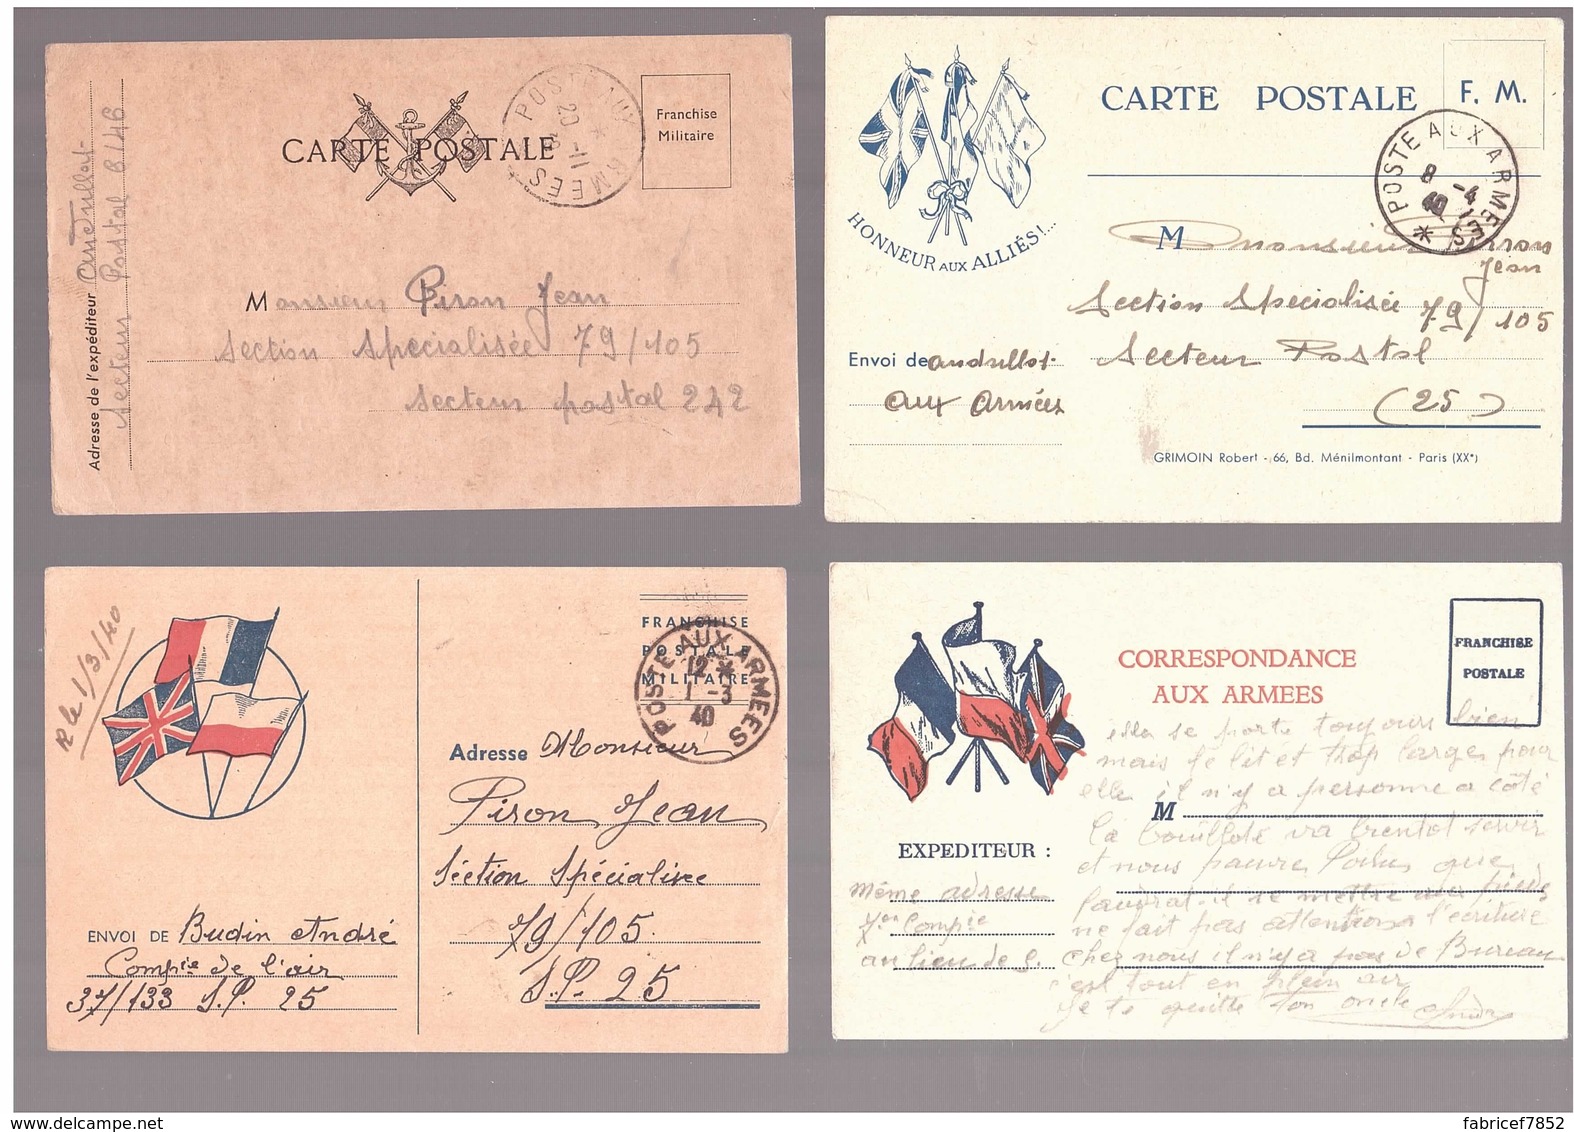 Adresse de l'expéditeur Andrullot
Secteur Postal 6146
CARTE POSTALE
POSTE AUX ARMEES
20 -11
Franchise
Militaire
Monsieur Piron Jean
Section Spécialisée 79/105
Secteur postal 242
HONNEUR AUX ALLIÉS!...
CARTE POSTALE
F. M.
POSTE AUX ARMEES
8 -4
40
M Monsieur Piron
Jean
Section Spécialisée
79/105
Secteur Postal
(25)
Envoi de andrullot
aux armées
GRIMOIN Robert - 66, Bd. Ménilmontant - Paris (XXe)
R le 1/3/40
FRANCHISE
POSTALE
MILITAIRE
POSTE AUX ARMEES
12 *
1 -3
40
Adresse Monsieur
Piron Jean
Section Spécialisée
79/105.
S.P. 25
ENVOI DE Budin André
Compie de l'air
37/133 S.P. 25
CORRESPONDANCE
AUX ARMEES
FRANCHISE
POSTALE
M
EXPEDITEUR :
même adresse
7em Compie
au lieu de 5.
elle se porte toujours bien
mais le lit et trop large pour
elle il n'y a personne a côté
la bouillote va bientot servir
et nous pauvre Poilu que
faudrat-il se mettre aux pieds
ne fait pas attention a l'écriture
chez nous il n'y a pas de Bureau
c'est tout en plein air
je te quitte ton oncle André
fabricef7852